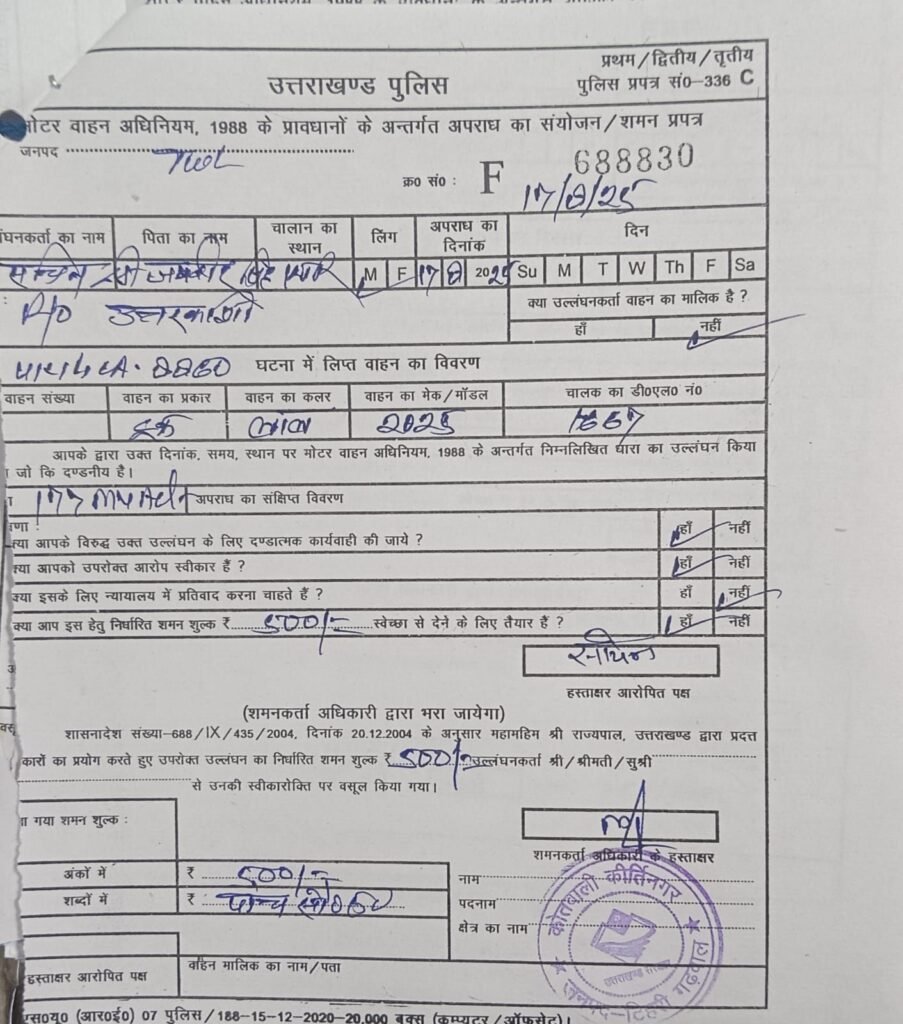 उत्तराखण्ड पुलिस
प्रथम/द्वितीय/तृतीय
पुलिस प्रपत्र सं0-336 C
मोटर वाहन अधिनियम, 1988 के प्रावधानों के अन्तर्गत अपराध का संयोजन/शमन प्रपत्र
जनपद
क्र0 सं0 : F 688830
17/8/25
घनकर्ता का नाम पिता का नाम चालान का स्थान लिंग अपराध का दिनांक दिन
M F 17 8 2025 Su M T W Th F Sa
R/o उत्तरकाशी
क्या उल्लंघनकर्ता वाहन का मालिक है ?
हाँ नहीं
घटना में लिप्त वाहन का विवरण
वाहन संख्या वाहन का प्रकार वाहन का कलर वाहन का मेक/मॉडल चालक का डी0एल0 नं0
ट्रक 2025
आपके द्वारा उक्त दिनांक, समय, स्थान पर मोटर वाहन अधिनियम, 1988 के अन्तर्गत निम्नलिखित धारा का उल्लंघन किया
जो कि दण्डनीय है।
177 MV Act अपराध का संक्षिप्त विवरण
णा :
क्या आपके विरुद्ध उक्त उल्लंघन के लिए दण्डात्मक कार्यवाही की जाये ? हाँ नहीं
क्या आपको उपरोक्त आरोप स्वीकार हैं ? हाँ नहीं
क्या इसके लिए न्यायालय में प्रतिवाद करना चाहते हैं ? हाँ नहीं
क्या आप इस हेतु निर्धारित शमन शुल्क ₹ 500/- स्वेच्छा से देने के लिए तैयार हैं ? हाँ नहीं
सचिन
हस्ताक्षर आरोपित पक्ष
(शमनकर्ता अधिकारी द्वारा भरा जायेगा)
शासनादेश संख्या-688/IX/435/2004, दिनांक 20.12.2004 के अनुसार महामहिम श्री राज्यपाल, उत्तराखण्ड द्वारा प्रदत्त
कारों का प्रयोग करते हुए उपरोक्त उल्लंघन का निर्धारित शमन शुल्क ₹ 500/- उल्लंघनकर्ता श्री/श्रीमती/सुश्री
से उनकी स्वीकारोक्ति पर वसूल किया गया।
ा गया शमन शुल्क :
शमनकर्ता अधिकारी के हस्ताक्षर
अंकों में ₹ 500/-
नाम
शब्दों में ₹ पांच सौ रु0
पदनाम
क्षेत्र का नाम
कोतवाली कीर्तिनगर
जनपद-टिहरी गढ़वाल
हस्ताक्षर आरोपित पक्ष
वाहन मालिक का नाम/पता
एस0यू0 (आर0ई0) 07 पुलिस/188-15-12-2020-20,000 बुक्स (कम्प्यूटर/ऑफसेट)।